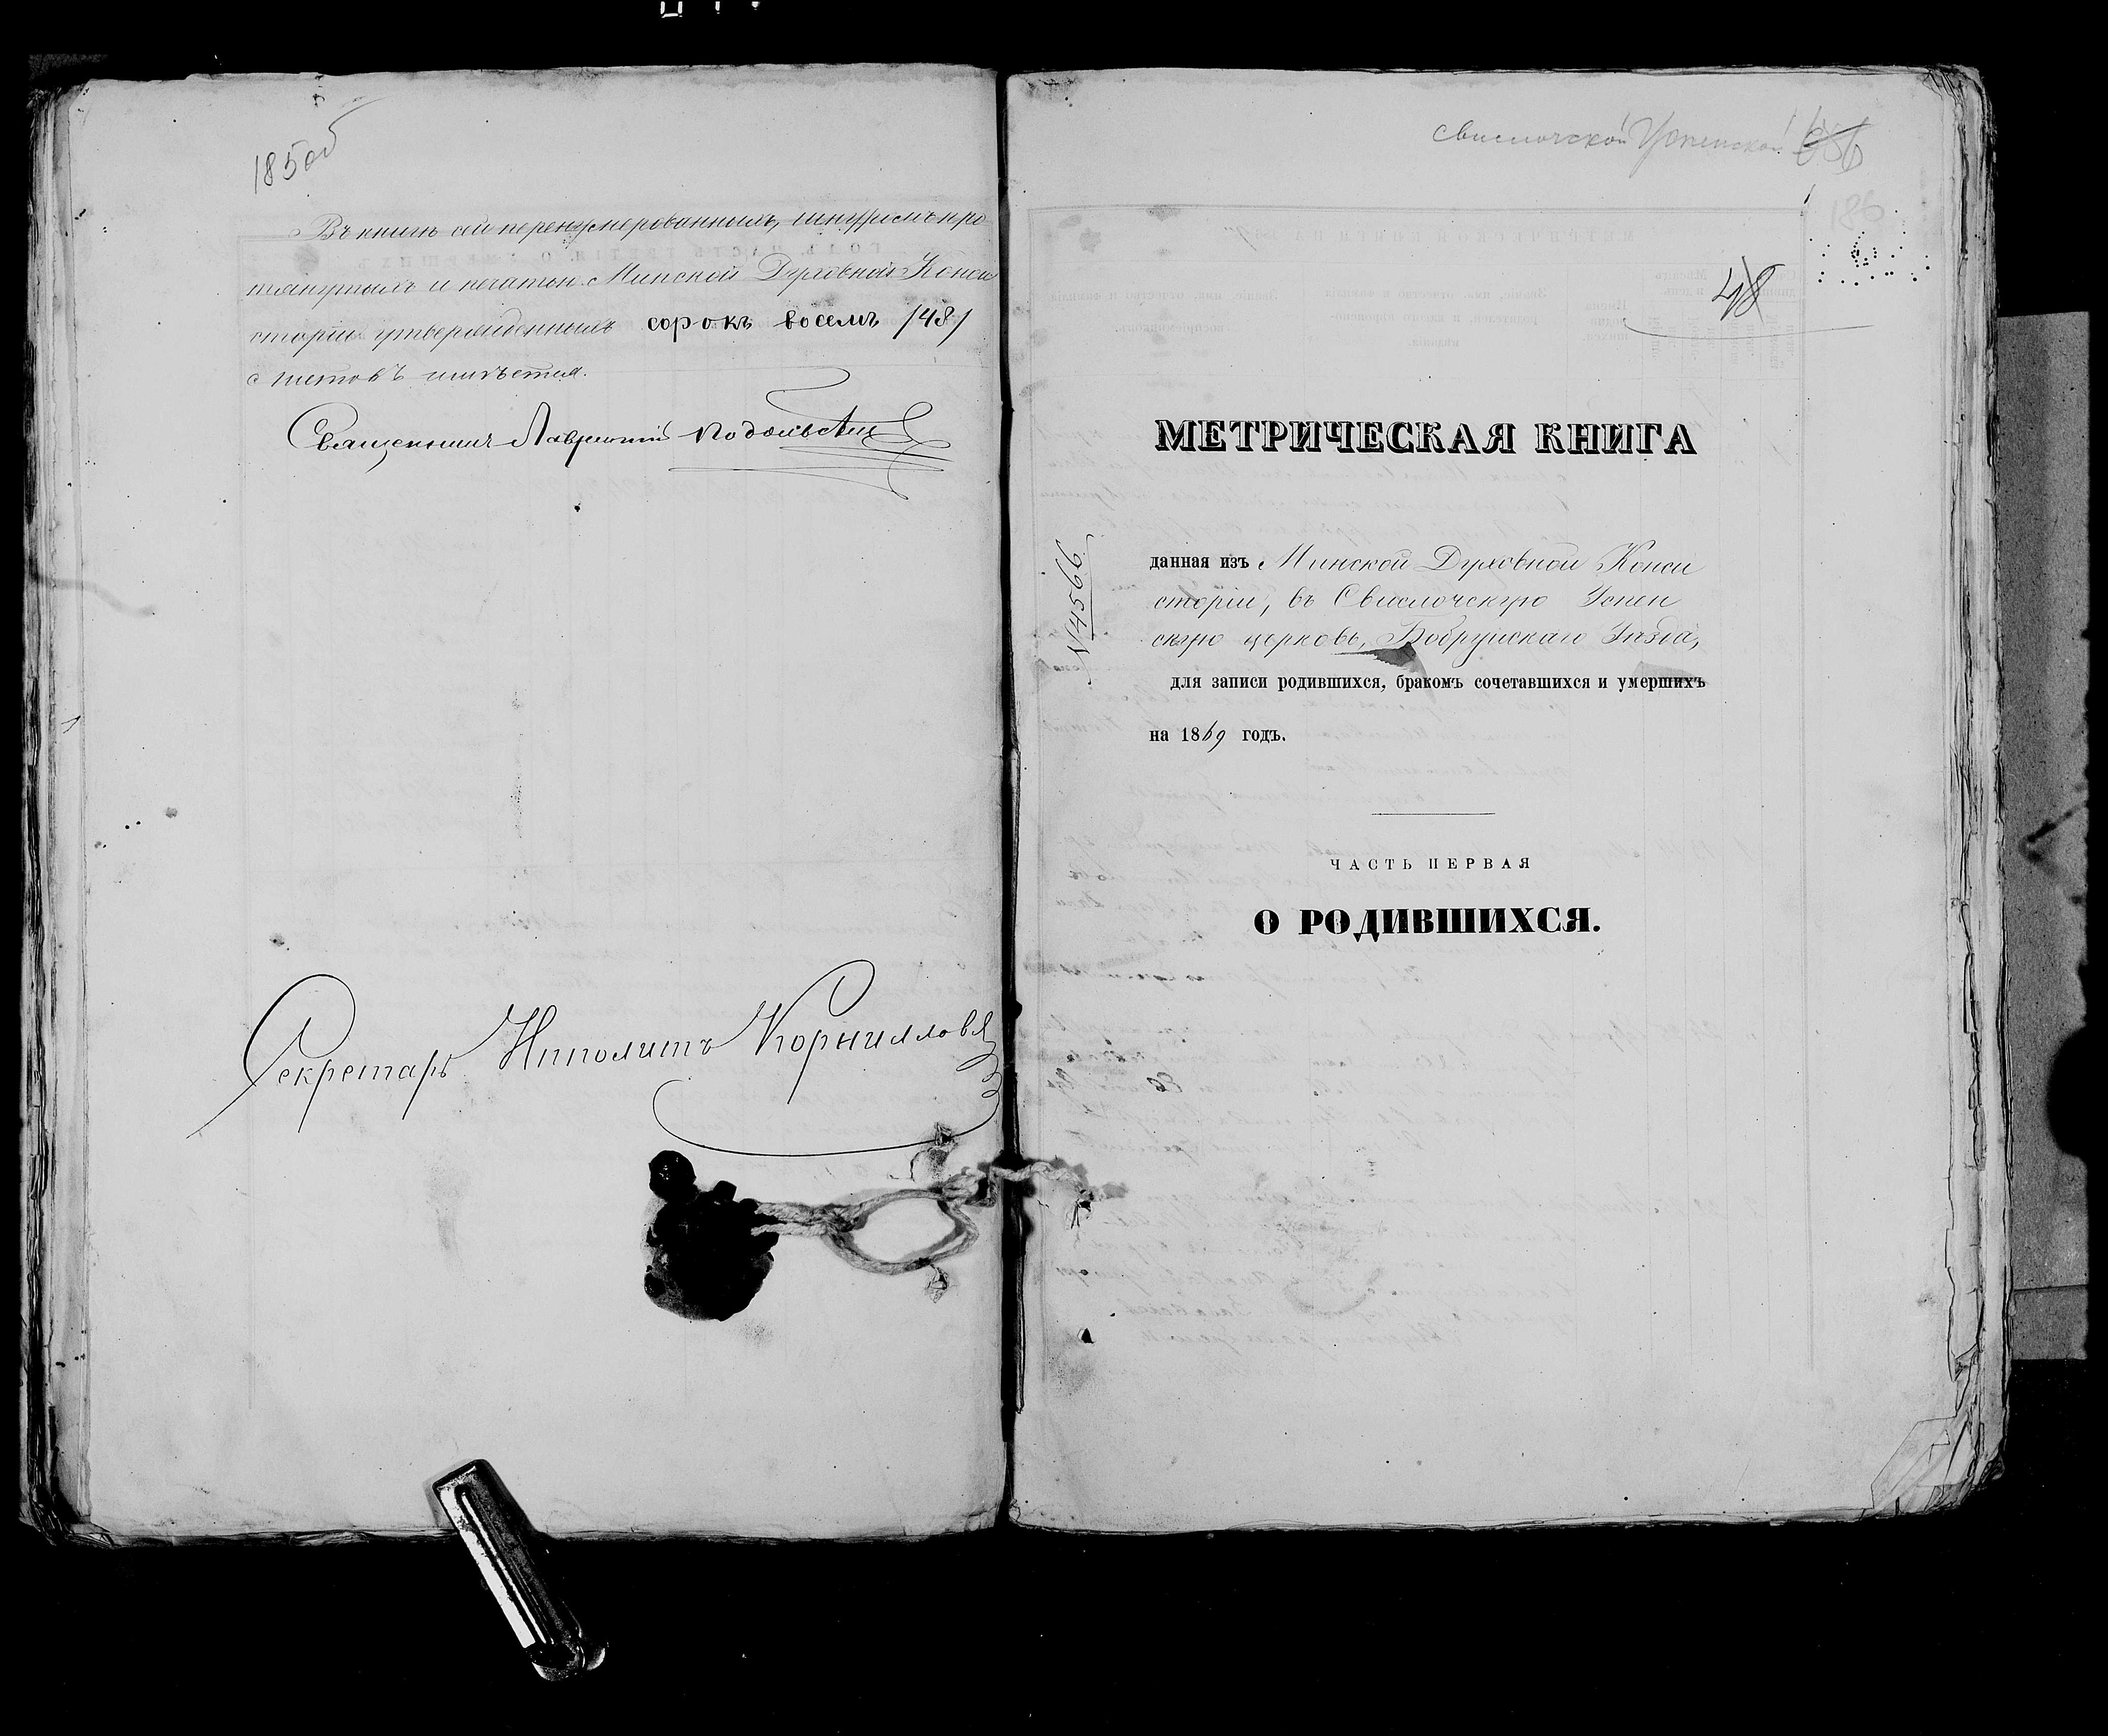 185об
Въ книгѣ сей перенумерованныхъ, шнуромъ про
тянутыхъ и печатью Минской Духовной Конси
сторіи утвержденныхъ сорокъ восемь /48/
листовъ имѣется.
Священникъ Лаврентій Подольскій
Секретарь Ипполитъ Корниловъ
Свислочской Успенской
186
48
МЕТРИЧЕСКАЯ КНИГА
№ 4566
данная изъ Минской Духовной Конси
сторіи, въ Свислочскую Успен
скую церковь, Бобруйскаго Уѣзда,
для записи родившихся, бракомъ сочетавшихся и умершихъ
на 1869 годъ.
ЧАСТЬ ПЕРВАЯ
О РОДИВШИХСЯ.